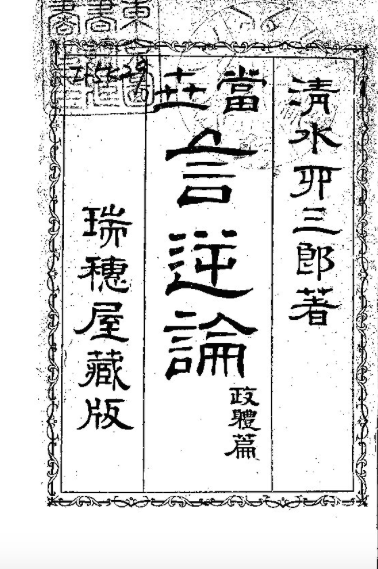 清水卯三郎著
當世
言逆論
政體篇
瑞穗屋藏版